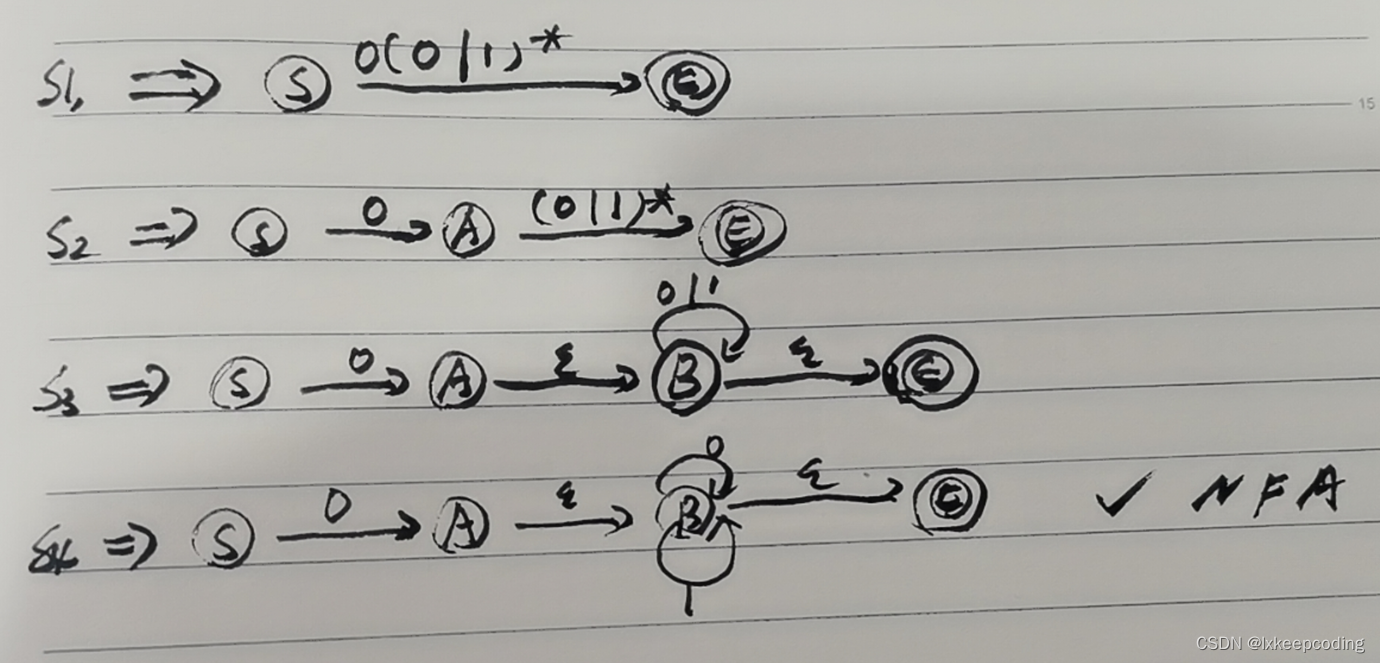 S1, ⇒ S 0(0|1)* E
15
S2 ⇒ S 0 A (0|1)* E
0|1
S3 ⇒ S 0 A ε B ε E
0
S4 ⇒ S 0 A ε B ε E ✓ NFA
1
CSDN @lxkeepcoding